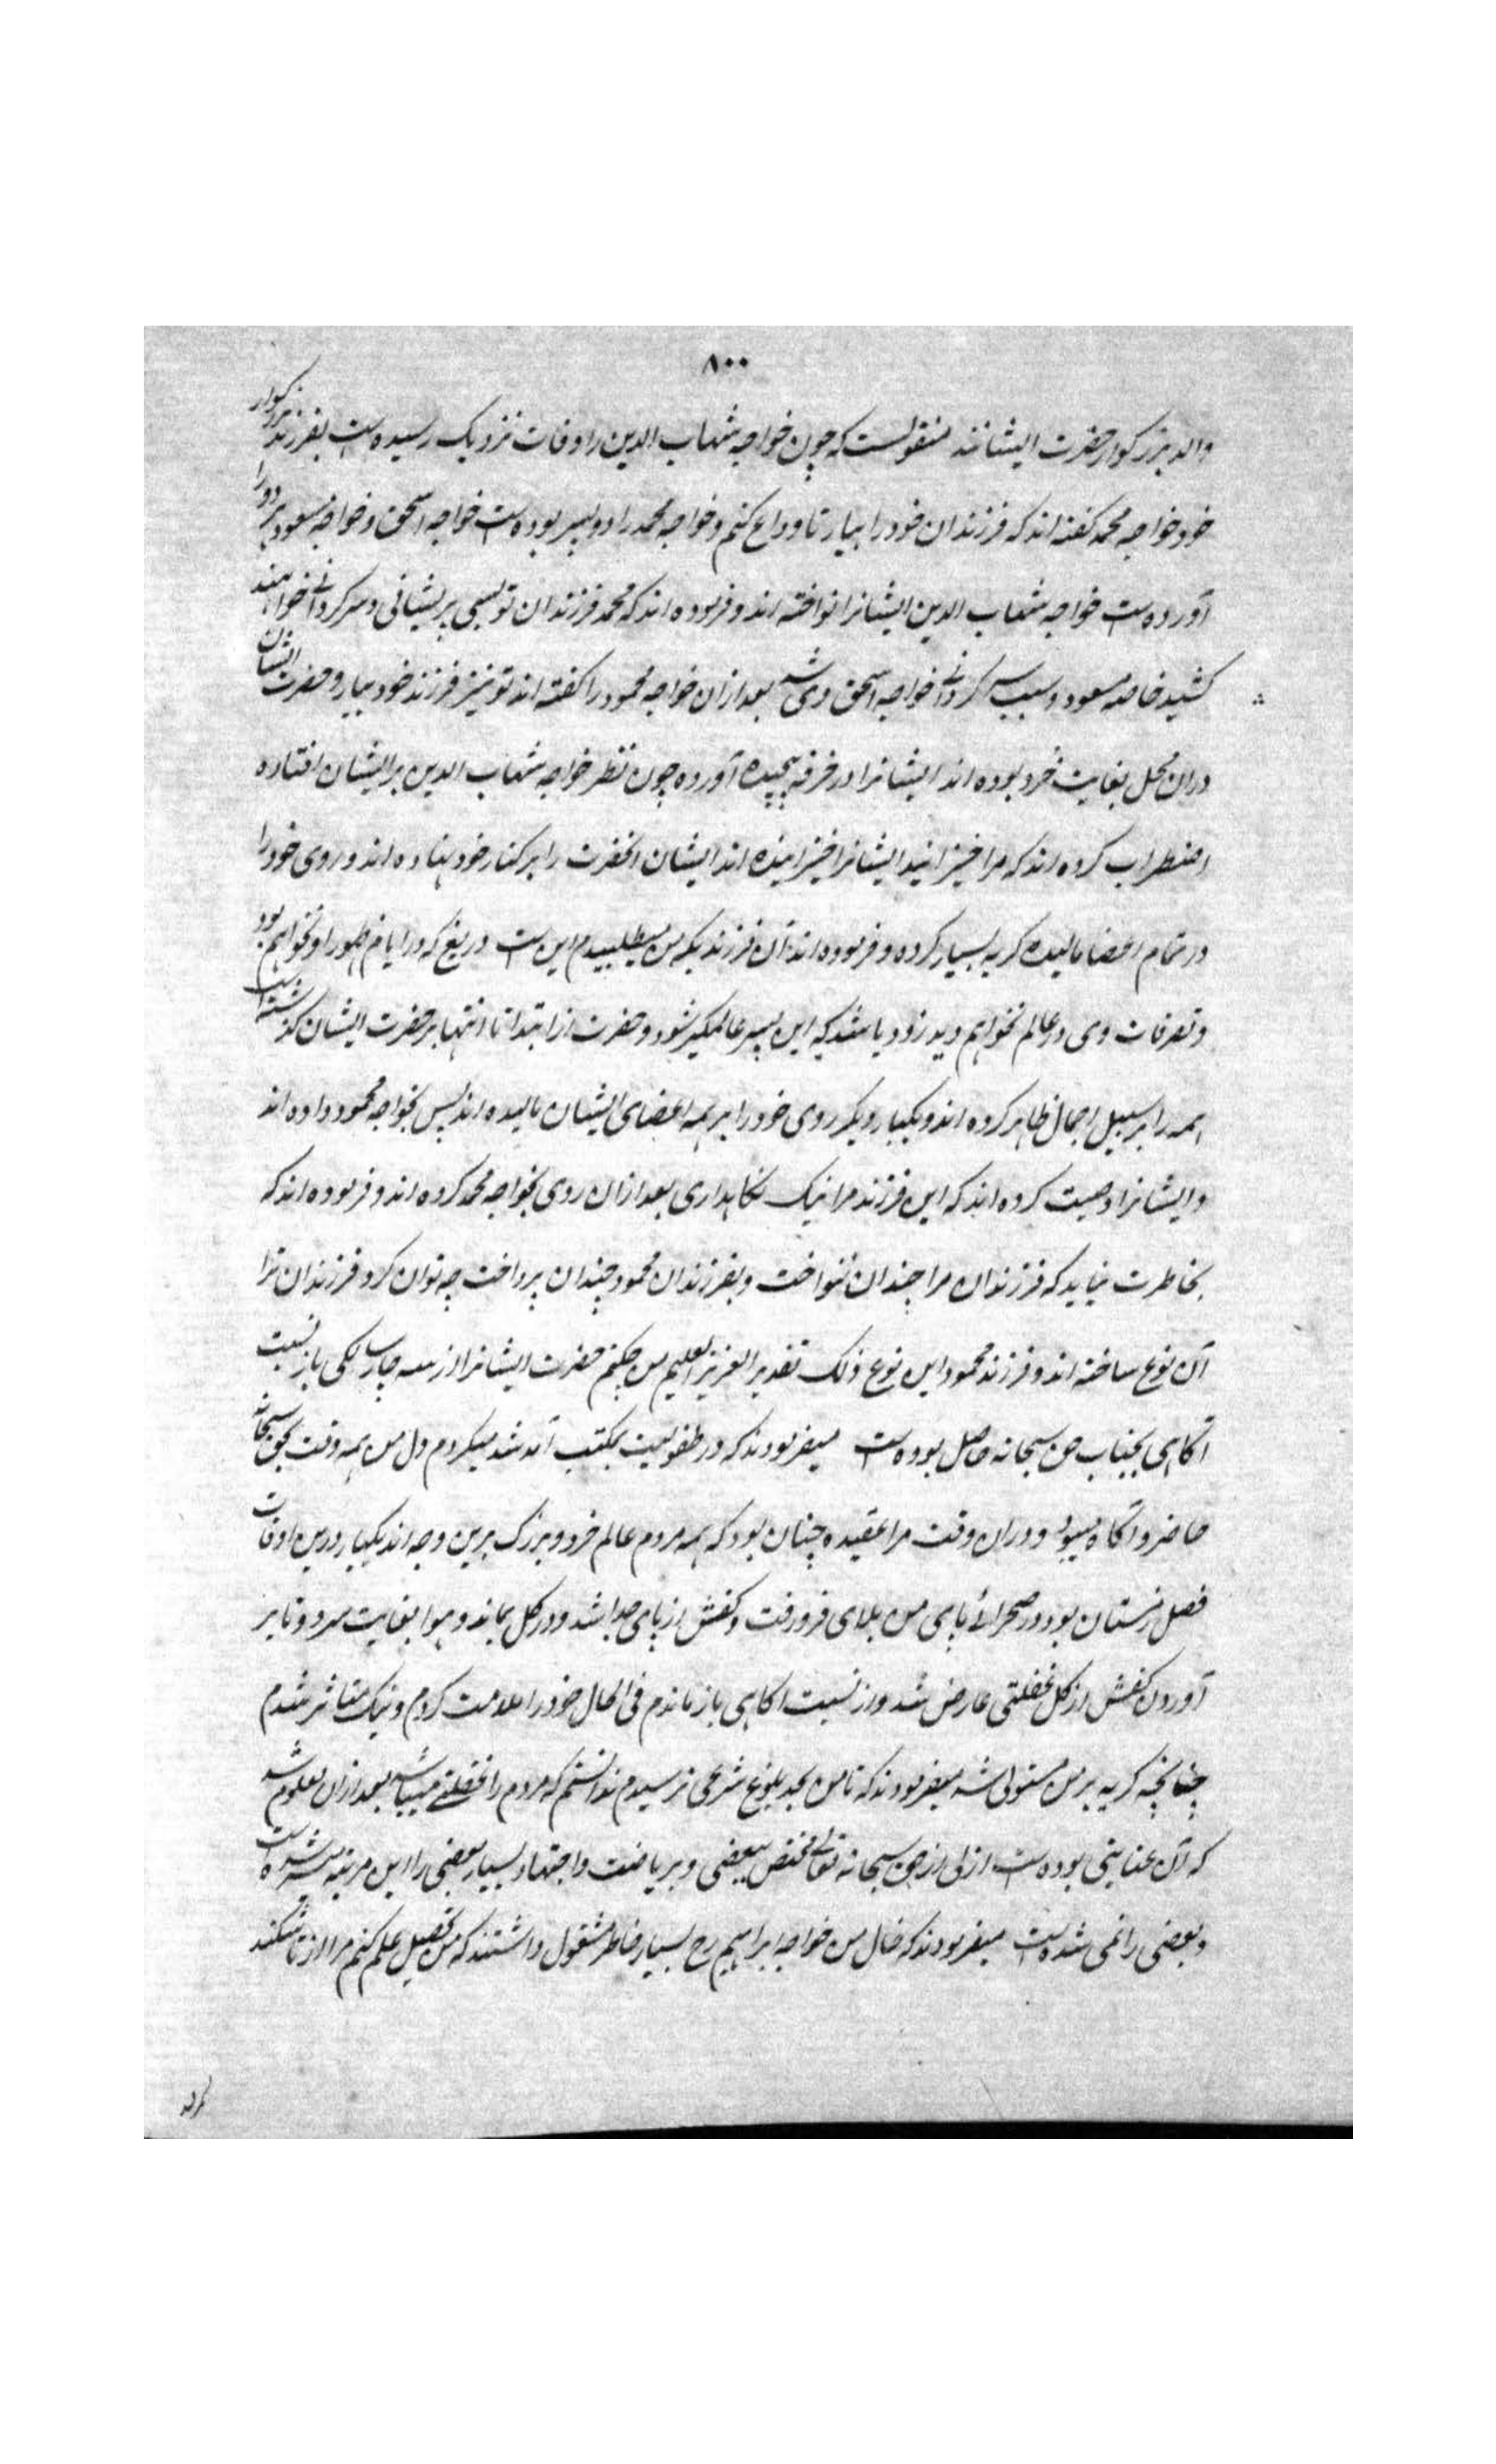 ۸۰۰
والد بزرکوار حضرت ایشانند منقولست که چون خواجه شهاب الدین را وفات نزدیک رسیده است بفرزند بزرکوار
خود خواجه محمد کفته اند که فرزندان خود را بیار تا وداع کنم و خواجه محمد را دو پسر بوده است خواجه اسحق و خواجه مسعود هر دو را
آورده است خواجه شهاب الدین ایشانرا نواخته اند و فرموده اند که محمد فرزندان تو بسی پریشانی و سرکردانی خواهند
کشید خاصه مسعود و سبب سرکردانی خواجه اسحق وی شد بعد ازان خواجه محمود را کفته اند تو نیز فرزند خود بیار و حضرت ایشان
دران محل بغایت خرد بوده اند ایشانرا در خرقه پیچیده آورده چون نظر خواجه شهاب الدین بر ایشان افتاده
اضطراب کرده اند که مرا خیزانید ایشانرا خیزانیده اند ایشان انحضرت را بر کنار خود نهاده اند و روی خود را
در تمام اعضا مالیده کریه بسیار کرده و فرموده اند آن فرزندیکه من میطلبیدم این است دریغ که در ایام ظهور او نخواهم بود
و تصرفات وی در عالم نخواهم دید زود باشد که این پسر عالمکیر شود و حضرت از ابتدا تا انتها بر حضرت ایشان کذشته است
همه را بر سبیل اجمال ظاهر کرده اند و یکبار دیکر روی خود را بر همه اعضای ایشان مالیده اند پس بخواجه محمود داده اند
و ایشانرا وصیت کرده اند که این فرزند مرا نیک نکاهداری بعد ازان روی بخواجه محمد کرده اند و فرموده اند که
بخاطرت نیاید که فرزندان مرا چندان ننواخت و بفرزندان محمود چندان پرداخت چه توان کرد فرزندان ترا
آن نوع ساخته اند و فرزند محمود این نوع ذلک تقدیر العزیز العلیم من چکنم حضرت ایشانرا از سه چار سالکی باز نسبت
آکاهی بجناب حق سبحانه حاصل بوده است میفرمودند که در طفولیت بمکتب آمد شد میکردم دل من همه وقت بحق سبحانه
حاضر و آکاه میبود و دران وقت مرا عقیده چنان بود که همه مردم عالم خرد و بزرک برین وجه اند یکبار درین اوقات
فصل زمستان بود در صحرائے پای من بلای فرو رفت و کفش از پای جدا شد و در کل بماند و هوا بغایت سرد و تا بر
آوردن کفش از کل غفلتی عارض شد و از نسبت اکاهی باز ماندم فی الحال خود را ملامت کردم و نیک متاثر شدم
چنانچه کریه بر من مستولی شد میفرمودند که تا من بحد بلوغ شرعی نرسیدم ندانستم که مردم را غفلتے میباشد بعد ازان معلوم شد
که آن عنایتی بوده است ازلی از حق سبحانه تعالی مختص ببعضی و بریاضت و اجتهاد بسیار بعضی را این مرتبه میسر شده است
و بعضی را نمی شده است میفرمودند که خال من خواجه ابراهیم رح بسیار خاطر مشغول داشتند که من تحصیل علم کنم مرا از تاشکند